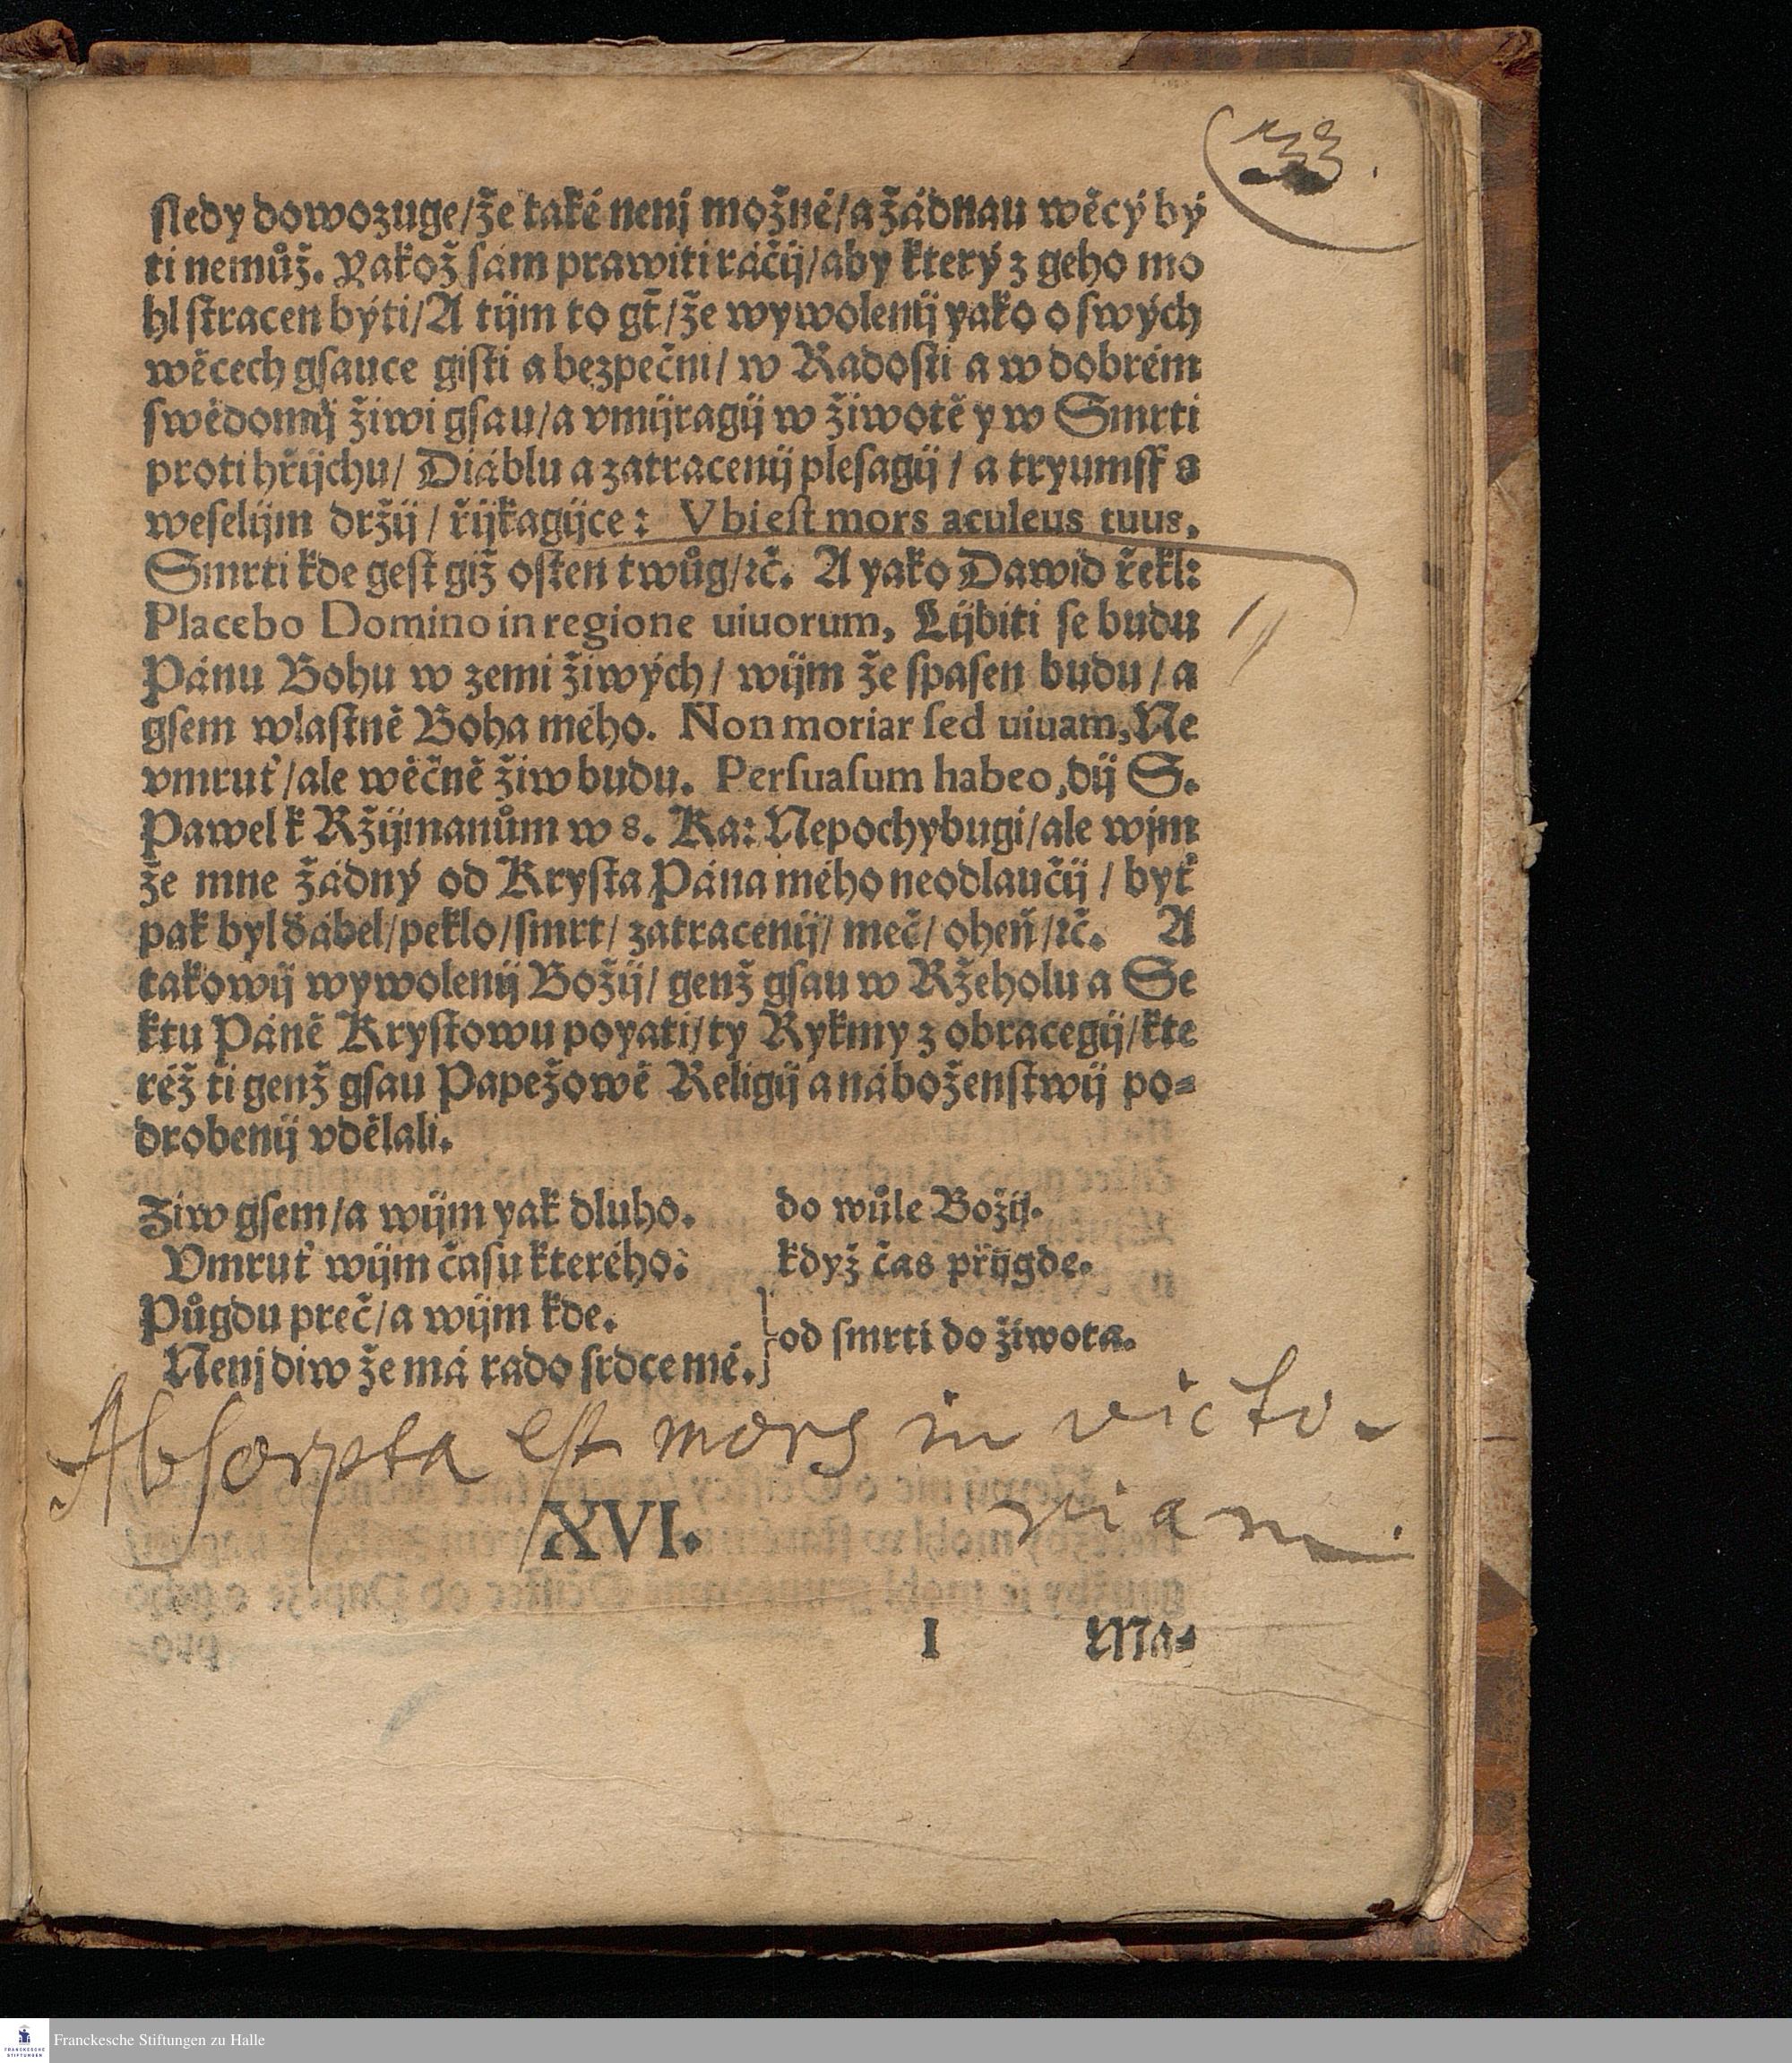 33.
sledy dowozuge/že také nenj možné/a žádnau wěcý bý
ti nemůž. Yakož sám prawiti ráčij/aby který z geho mo
hl stracen býti/A tijm to gt̄/že wywolenij yako o swých
wěcech gsauce gisti a bezpečni/ w Radosti a w dobrém
swědomij žiwi gsau/a vmijragij w žiwotě y w Smrti
proti hřijchu/ Diáblu a zatracenij plesagij/ a tryumff s
weselijm držij/ řijkagijce: Vbi est mors aculeus tuus,
Smrti kde gest giž osten twůg/ꝛč. A yako Dawid řekl:
Placebo Domino in regione uiuorum, Lijbiti se budu
Pánu Bohu w zemi žiwých/ wijm že spasen budu/a
gsem wlastně Boha mého. Non moriar sed uiuam, Ne
vmruť/ale wěčně žiw budu. Persuasum habeo, dij S.
Pawel k Ržijmanům w 8. Ka: Nepochybugi/ale wjm
že mne žádný od Krysta Pána mého neodlaučij/ byť
pak byl ďábel/peklo/smrt/ zatracenij/ meč/ oheň/ꝛč. A
takowij wywolenij Božij/ genž gsau w Ržeholu a Se
ktu Páně Krystowu poyati/ty Rykmy z obracegij/kte
réž ti genž gsau Papežowě Religij a náboženstwij po=
drobenij vdělali.
Ziw gsem/a wijm yak dluho. do wůle Božij.
Vmruť wijm času kterého: když čas přijgde.
Půgdu preč/a wijm kde.
Nenj diw že má rado srdce mé. od smrti do žiwota.
Absorpta est mors in victo-
riam.
XVI.
I Ma=
Franckesche Stiftungen zu Halle
FRANCKESCHE
STIFTUNGEN